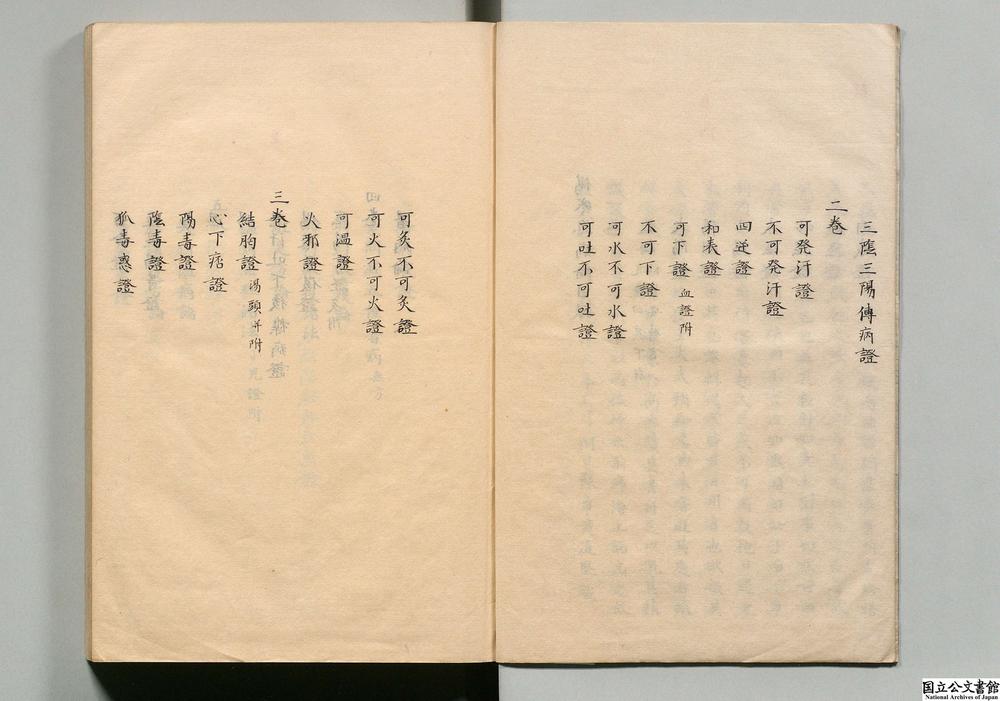 三陰三陽傳病證
二卷
可発汗證
不可発汗證
四逆證
和表證
可下證 血證附
不可下證
可水不可水證
可吐不可吐證
可灸不可灸證
可火不可火證
可温證
火邪證
三卷
結胸證 湯頭并附
心下痞證
陽毒證
陰毒證
狐毒惑證
国立公文書館
National Archives of Japan